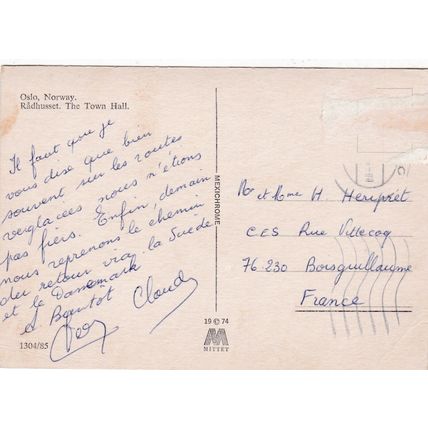 Oslo, Norway.
Rådhusset. The Town Hall.
Il faut que je
vous dise que bien
souvent sur les routes
verglacées nous n'étions
pas fiers. Enfin, demain
nous reprenons le chemin
du retour via la Suède
et le Danemark
à Bientôt
Claude
1304/85
MEXICHROME
19 © 74
MITTET
Mr et Mme H. Heripret
CES Rue Villecoq
76-230 Boisguillaume
France